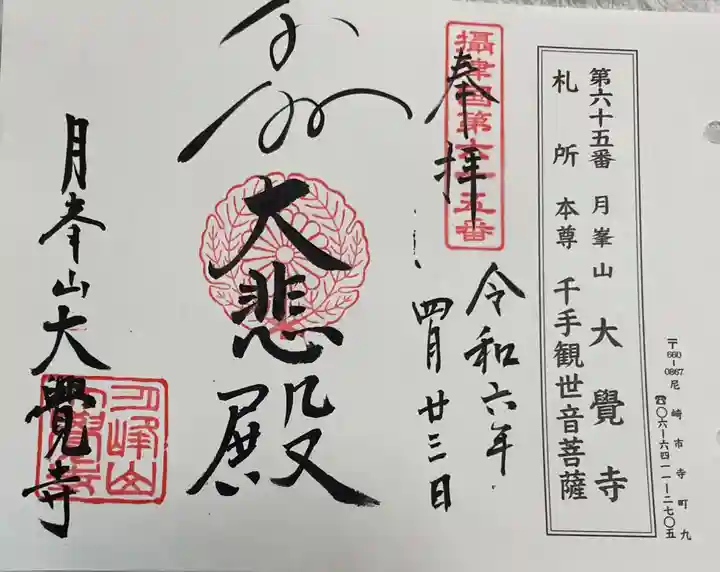 第六十五番 月峯山 大覺寺
札所 本尊 千手観世音菩薩
〒660-0867 尼崎市寺町九
☎〇六-六四一一-二七〇五
攝津国第六十五番
奉拝
令和六年
四月廿三日
大悲殿
月峯山大覺寺
月峰山